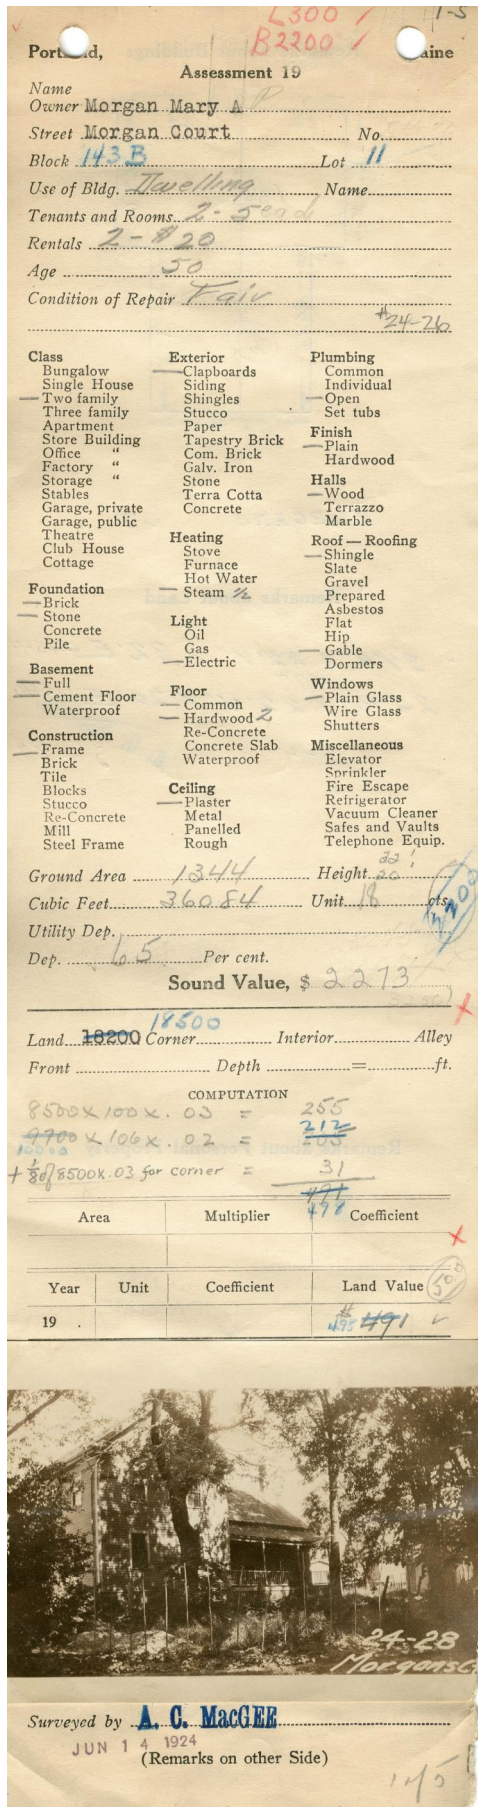 1-5
L300 ✓
B2200 ✓
Portland, Maine
Assessment 19
Name
Owner Morgan Mary A
Street Morgan Court No.
Block 143B Lot 11
Use of Bldg. Dwelling Name
Tenants and Rooms 2 - 5 each
Rentals 2 - $20
Age 50
Condition of Repair Fair
#24-26
Class
Bungalow
Single House
— Two family
Three family
Apartment
Store Building
Office "
Factory "
Storage "
Stables
Garage, private
Garage, public
Theatre
Club House
Cottage
Foundation
— Brick
— Stone
Concrete
Pile
Basement
— Full
— Cement Floor
Waterproof
Construction
— Frame
Brick
Tile
Blocks
Stucco
Re-Concrete
Mill
Steel Frame
Exterior
— Clapboards
Siding
Shingles
Stucco
Paper
Tapestry Brick
Com. Brick
Galv. Iron
Stone
Terra Cotta
Concrete
Heating
Stove
Furnace
Hot Water
— Steam 1/2
Light
Oil
Gas
— Electric
Floor
— Common
— Hardwood 2
Re-Concrete
Concrete Slab
Waterproof
Ceiling
— Plaster
Metal
Panelled
Rough
Plumbing
Common
Individual
— Open
Set tubs
Finish
— Plain
Hardwood
Halls
— Wood
Terrazzo
Marble
Roof — Roofing
— Shingle
Slate
Gravel
Prepared
Asbestos
Flat
Hip
— Gable
Dormers
Windows
— Plain Glass
Wire Glass
Shutters
Miscellaneous
Elevator
Sprinkler
Fire Escape
Refrigerator
Vacuum Cleaner
Safes and Vaults
Telephone Equip.
Ground Area 1344 Height 20
Cubic Feet 36084 Unit 18 cts.
2200
Utility Dep.
Dep. 65 Per cent.
Sound Value, $ 2273
18500
Land 18200 Corner Interior Alley
Front Depth = ft.
COMPUTATION
8500 x 100 x .03 = 255
212
9700 x 106 x .02 = 205
+ 1/8 of 8500 x .03 for corner = 31
491
498
Area Multiplier Coefficient
Year Unit Coefficient Land Value
19 . $ 495 491 ✓
24-28
Morgans Ct.
Surveyed by A. C. MacGEE
JUN 14 1924
(Remarks on other Side)
1 of 5